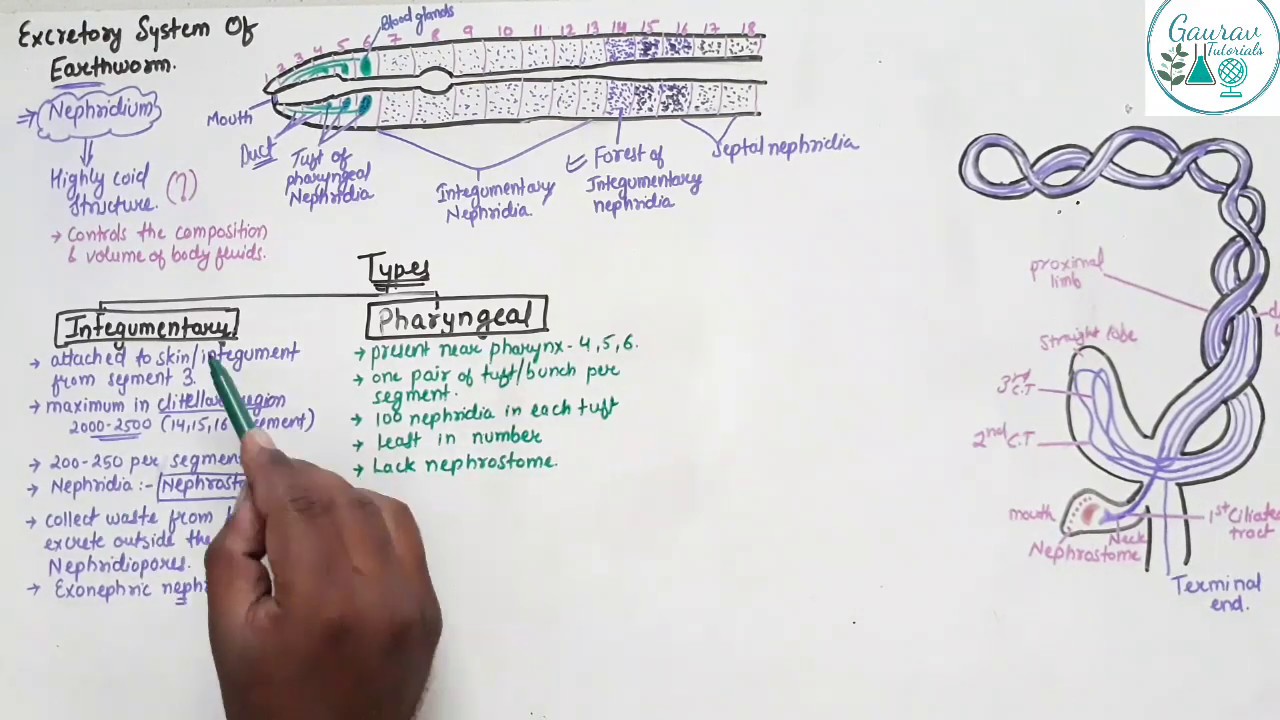 Excretory System Of
Earthworm.
Nephridium
Highly coid
Structure. (?)
→ Controls the composition
& volume of body fluids.
Blood glands
1 2 3 4 5 6 7 8 9 10 11 12 13 14 15 16 17 18
Mouth
Duct
Tuft of
pharyngeal
Nephridia
Integumentary
Nephridia.
Forest of
Integumentary
nephridia
Septal nephridia
Types
Integumentary
→ attached to skin/integument
from segment 3.
→ maximum in clitellar region
2000-2500 (14,15,16
→ 200-250 per segment
→ Nephridia :-
→ collect waste from
excrete outside the
Nephridiopores.
→ Exonephric
Pharyngeal
→ present near pharynx - 4,5,6.
→ one pair of tuft/bunch per
segment.
→ 100 nephridia in each tuft
→ Least in number
→ Lack nephrostome.
proximal
limb
straight lobe
3rd C.T
2nd C.T
mouth
Nephrostome
Neck
1st Ciliated
tract
Terminal
end.
Gaurav
Tutorials